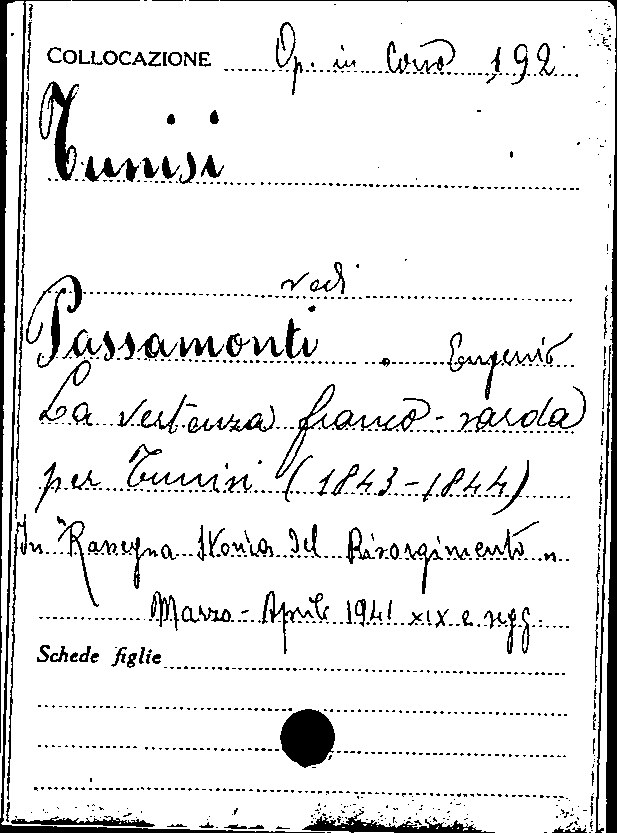 COLLOCAZIONE Op. in Corso 192
Tunisi
vedi
Passamonti. Eugenio
La vertenza franco-sarda
per Tunisi (1843-1844)
In "Rassegna Storica del Risorgimento"
Marzo-Aprile 1941 XIX e segg.
Schede figlie